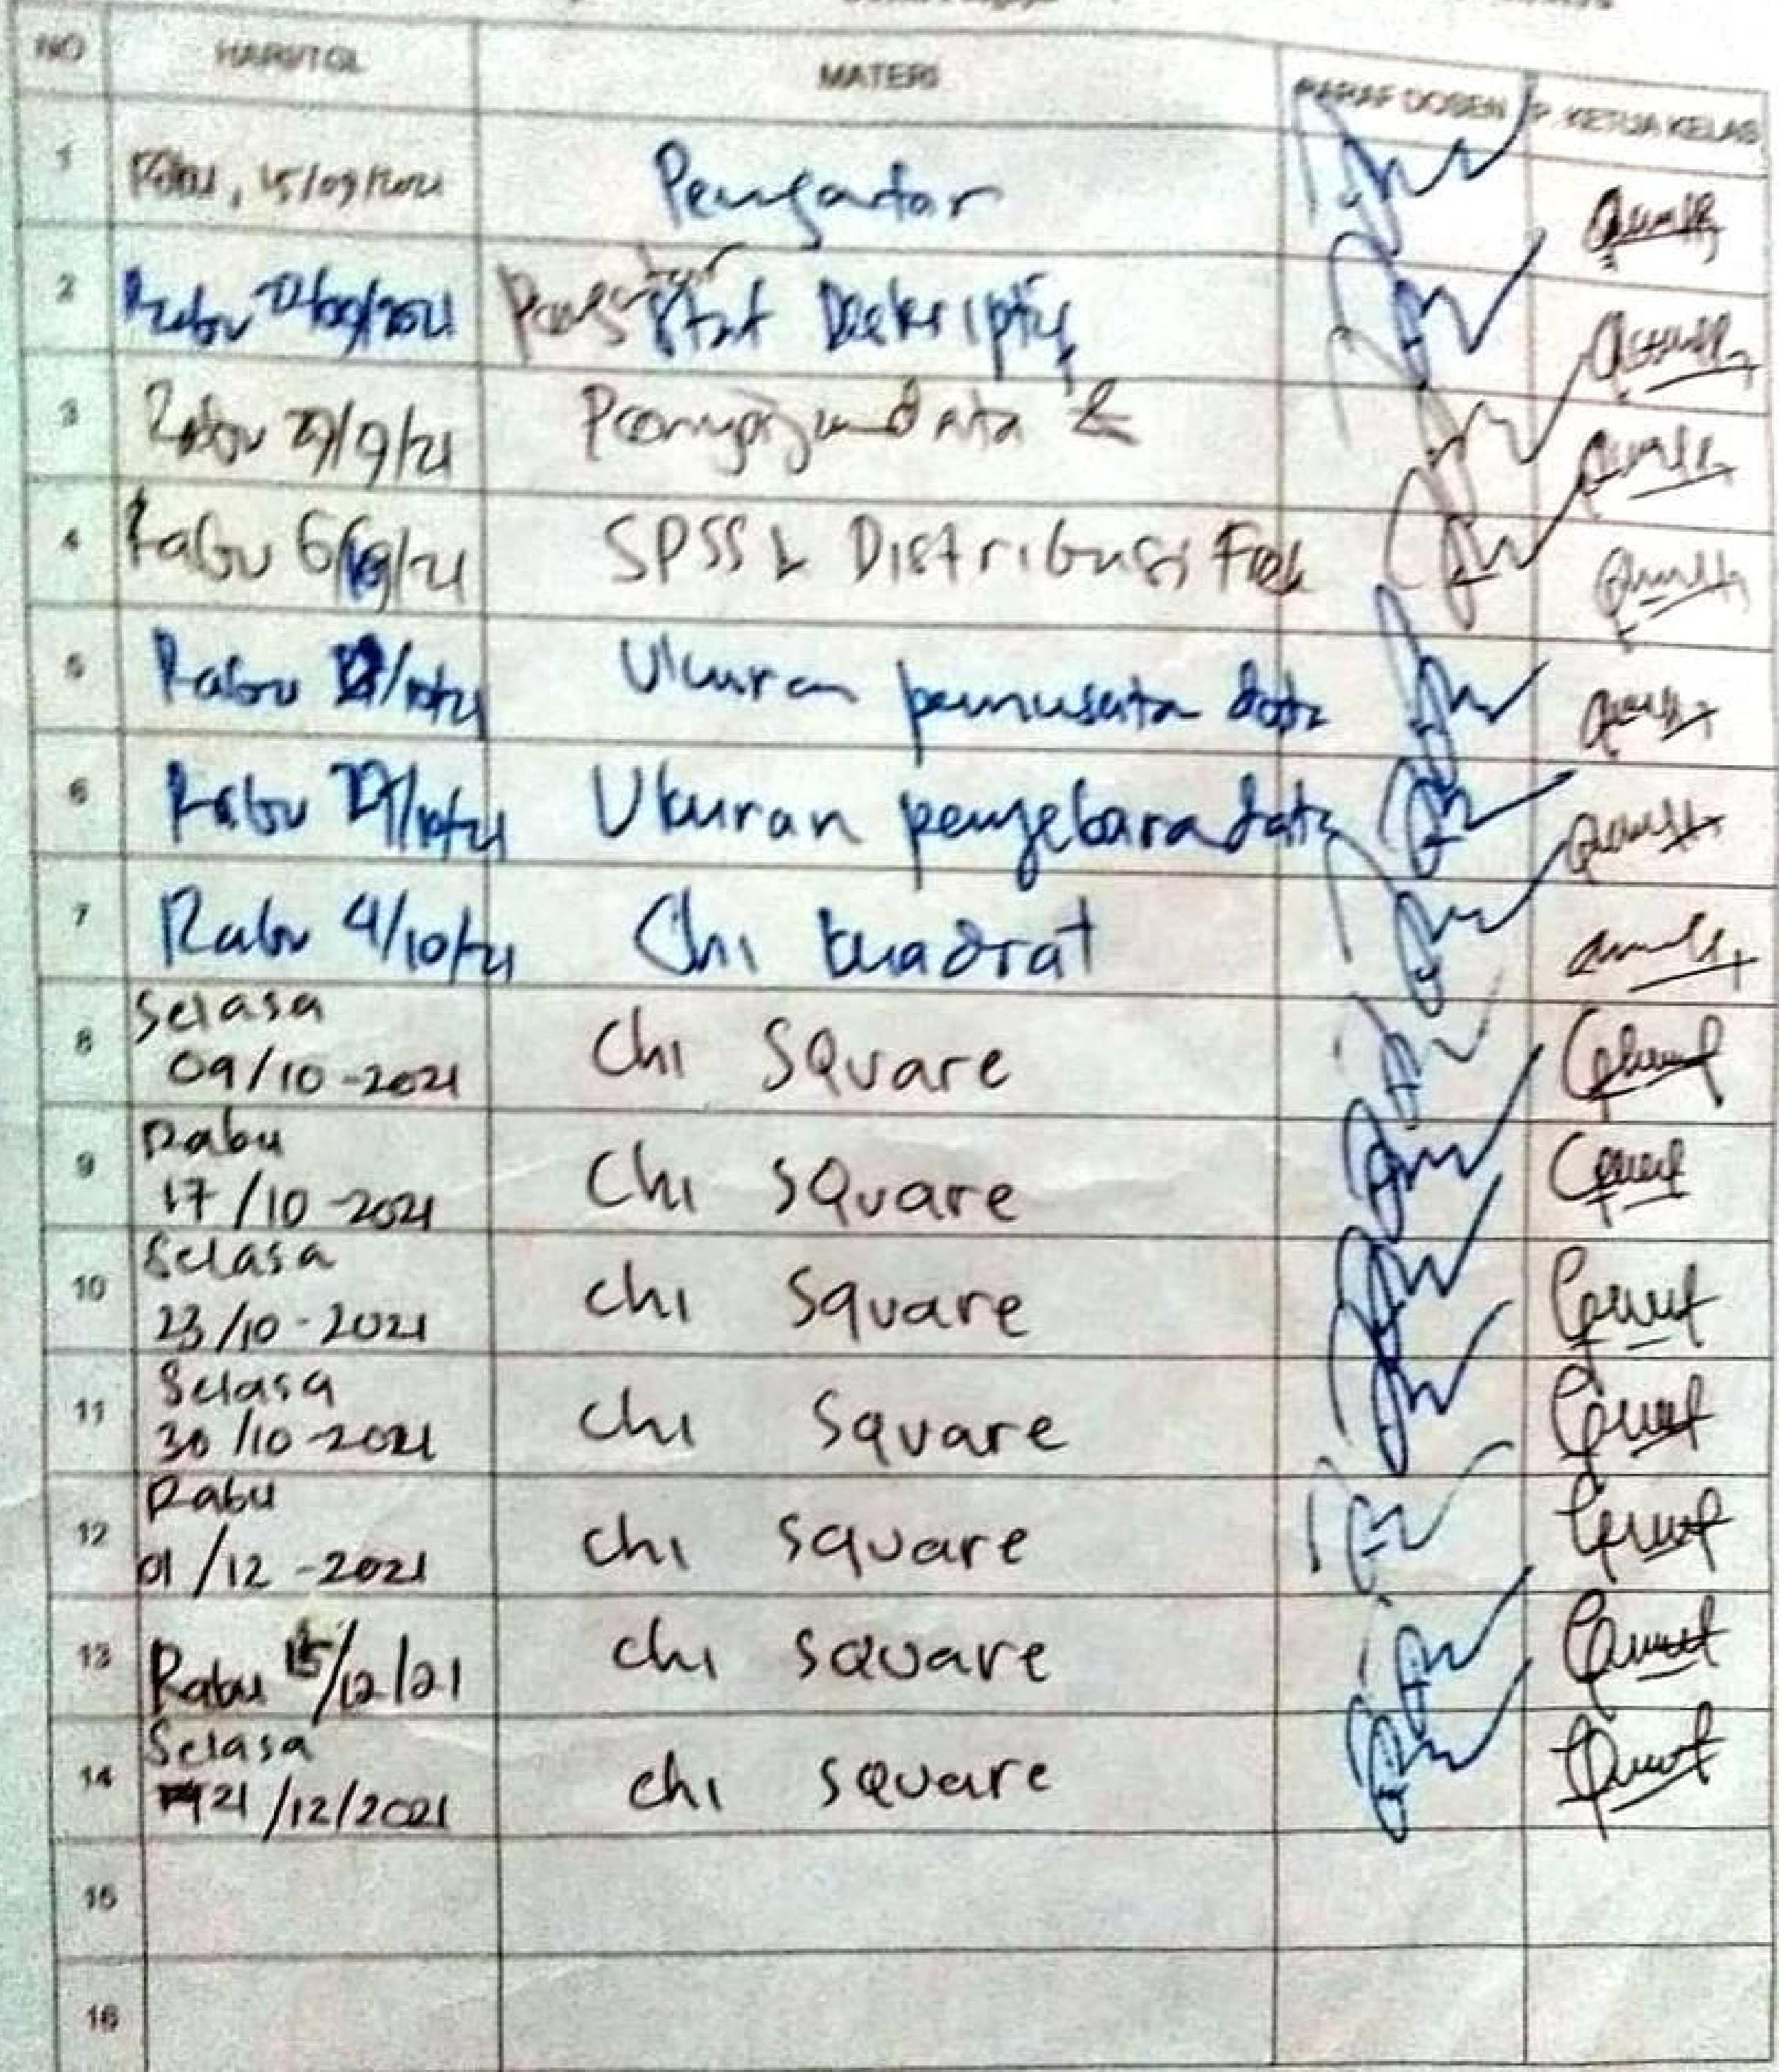 NO HARI/TGL MATERI PARAF DOSEN P. KETUA KELAS
1 Rabu, 15/09/2021 Pengantar
2 Rabu 22/09/2021 Stat Deskriptif
3 Rabu 29/9/21 Penyajian data &
4 Rabu 6/ /21 SPSS & Distribusi Frek
5 Rabu /10/21 Ukuran pemusata data
6 Rabu 27/10/21 Ukuran penyebaran data
7 Rabu 4/10/21 Chi kuadrat
8 Selasa
09/10-2021 Chi Square
9 Rabu
17/10-2021 Chi Square
10 Selasa
23/10-2021 chi square
11 Selasa
30/10-2021 chi square
12 Rabu
01/12-2021 chi square
13 Rabu 15/12/21 chi square
14 Selasa
21/12/2021 chi square
15
16